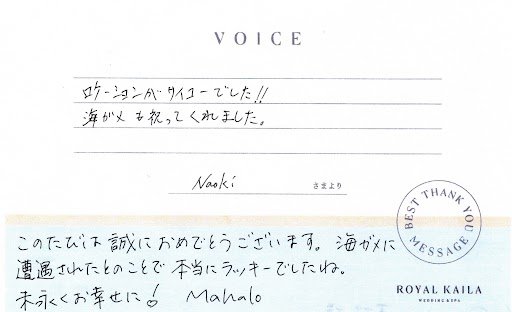 VOICE
ロケーションがサイコーでした!!
海ガメも祝ってくれました。
Naoki さまより
BEST THANK YOU MESSAGE
このたびは誠におめでとうございます。海ガメに
遭遇されたとのことで本当にラッキーでしたね。
末永くお幸せに!　Mahalo
ROYAL KAILA
WEDDING & SPA